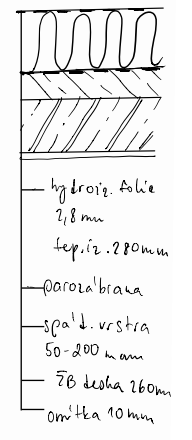 hydroiz. folie
2,8 mm
tep.iz. 280mm
parozábrana
spád. vrstva
50-200 mm
ŽB deska 260mm
omítka 10mm